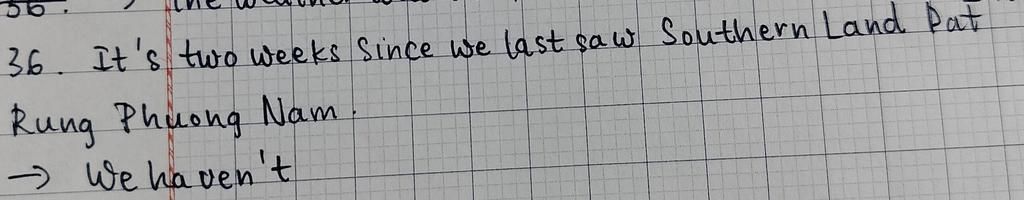 36. It's two weeks since we last saw Southern Land Đat
Rung Phuong Nam.
→ We haven't